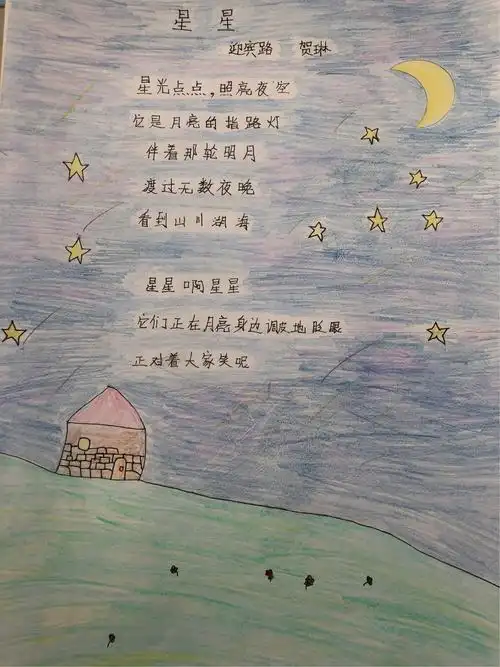 星 星
迎宾路 贺琳
星光点点，照亮夜空
它是月亮的指路灯
伴着那轮明月
渡过无数夜晚
看到山川湖海
星星啊星星
它们正在月亮身边调皮地眨眼
正对着大家笑呢